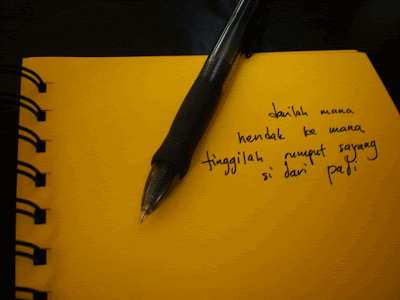 darilah mana
hendak ke mana
tinggilah rumput sayang
si dari padi